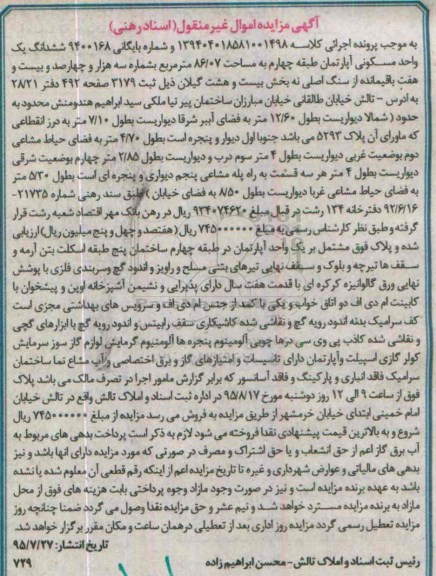 آگهی مزایده اموال غیر منقول( اسناد رهنی )
به موجب پرونده اجرائی کلاسه ۱۳۹۴۰۴۰۱۸۵۸۱۰۰۱۴۹۸ و شماره بایگانی ۹۴۰۰۱۶۸ ششدانگ یک
واحد مسکونی آپارتمان طبقه چهارم به مساحت ۸۶/۰۷ مترمربع بشماره سه هزار و چهارصد و بیست و
هفت باقیمانده از سنگ اصلی نه بخش بیست و هشت گیلان ذیل ثبت ۳۱۷۹ صفحه ۴۹۲ دفتر ۲۸/۲۱
به ادرس - تالش خیابان طالقانی خیابان مبارزان ساختمان پیر نیا ملکی سید ابراهیم هندومنش محدود به
حدود ( شمالا دیواریست بطول ۱۲/۶۰ متر به فضای آببر شرقا دیواریست بطول ۷/۱۰ متر به درز انقطاعی
که ماورای آن پلاک ۵۲۹۳ می باشد جنوبا اول دیوار و پنجره است بطول ۴/۷۰ متر به فضای حیاط مشاعی
دوم بوضعیت غربی دیواریست بطول ۴ متر سوم درب و دیواریست بطول ۲/۸۵ متر چهارم بوضعیت شرقی
دیواریست بطول ۴ متر هر سه قسمت به راه پله مشاعی پنجم دیواری و پنجره ای است بطول ۵/۳۰ متر
به فضای حیاط مشاعی غربا دیواریست بطول ۸/۵۰ به فضای خیابان ) طبق سند رهنی شماره ۲۱۷۳۵-
۹۲/۶/۱۶ دفترخانه ۱۳۴ رشت در قبال مبلغ ۹۳۴۰۷۴۶۲۰ ریال در رهن بانک مهر اقتصاد شعبه رشت قرار
گرفته وطبق نظر کارشناس رسمی به مبلغ ۷۴۵۰۰۰۰۰۰ ریال ( هفتصد و چهل و پنج میلیون ریال ) ارزیابی
شده و پلاک فوق مشتمل بر یک واحد آپارتمان در طبقه چهارم ساختمان پنج طبقه اسکلت بتن آرمه و
سقف ها تیرچه و بلوک و سقف نهایی تیرهای بتنی مسلح و راویز و اندود گچ وسربندی فلزی با پوشش
نهایی ورق گالوانیزه کرکره ای با قدمت هفت سال دارای پذیرایی و نشیمن آشپزخانه اوپن و پیشخوان با
کابینت ام دی اف دو اتاق خواب و یکی با کمد از جنس ام دی اف و سرویس های بهداشتی مجزی است
کف سرامیک بدنه اندود رویه گچ و نقاشی شده کاشیکاری سقف رابیتس و اندود رویه گچ با ابزارهای گچی
و نقاشی شده کاذب پی وی سی درها چوبی آلومینیوم پنجره ها آلومنیوم گرمایش لوازم گاز سوز سرمایش
کولر گازی اسپیلت وآپارتمان دارای تاسیسات و امتیازهای گاز و برق اختصاصی و آب مشاع نما ساختمان
سرامیک فاقد انباری و پارکینگ و فاقد آسانسور که برابر گزارش مامور اجرا در تصرف مالک می باشد پلاک
فوق از ساعت ۹ الی ۱۲ روز دوشنبه مورخ ۹۵/۸/۱۷ در اداره ثبت اسناد و املاک تالش واقع در تالش خیابان
امام خمینی ابتدای خیابان خرمشهر از طریق مزایده به فروش می رسد مزایده از مبلغ ۷۴۵۰۰۰۰۰۰ ریال
شروع و به بالاترین قیمت پیشنهادی نقدا فروخته می شود لازم به ذکر است پرداخت بدهی های مربوط به
آب برق گاز اعم از حق انشعاب و یا حق اشتراک و مصرف در صورتی که مورد مزایده دارای انها باشد و نیز
بدهی های مالیاتی و عوارض شهرداری و غیره تا تاریخ مزایده اعم از اینکه رقم قطعی آن معلوم شده یا نشده
باشد به عهده برنده مزایده است و نیز در صورت وجود مازاد وجوه پرداختی بابت هزینه های فوق از محل
مازاد به برنده مزایده مسترد خواهد شد و نیم عشر و حق مزایده نقدا وصول می گردد ضمنا چنانچه روز
مزایده تعطیل رسمی گردد مزایده روز اداری بعد از تعطیلی درهمان ساعت و مکان مقرر برگزار خواهد شد.
تاریخ انتشار: ۹۵/۷/۲۷
رئیس ثبت اسناد و املاک تالش - محسن ابراهیم زاده ۷۲۹